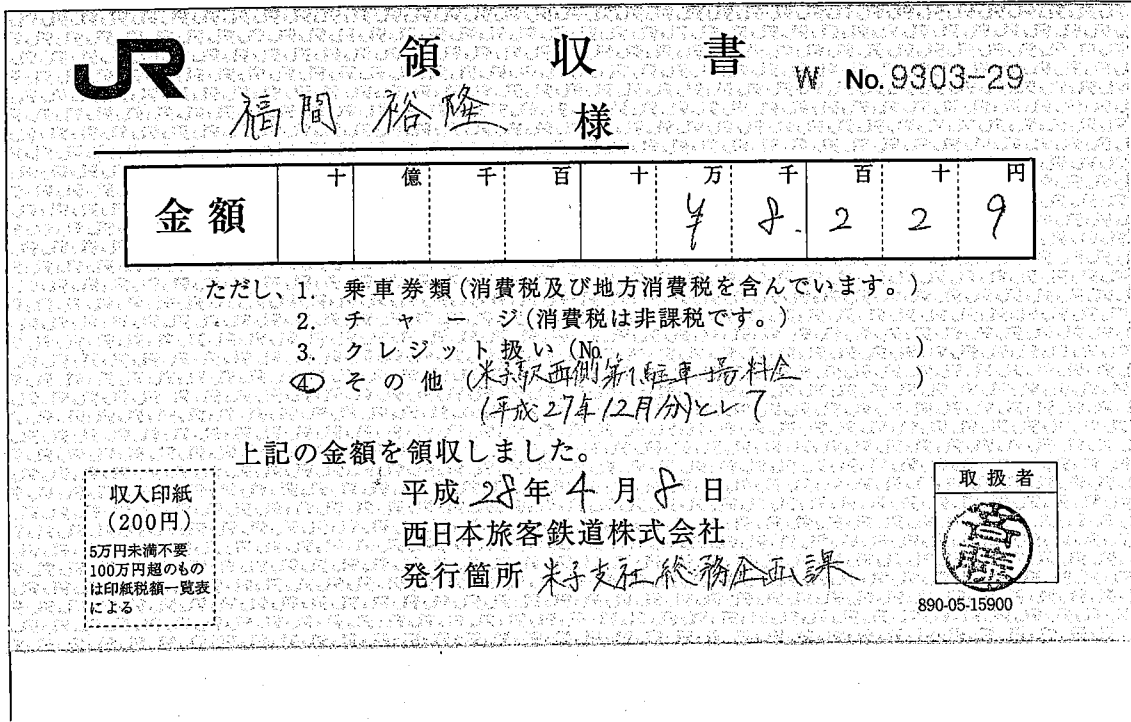 JR 領収書 W No.9303-29
福間 裕隆 様
金額 十 億 千 百 十 万 千 百 十 円
¥8.229
ただし、1. 乗車券類(消費税及び地方消費税を含んでいます。)
2. チャージ(消費税は非課税です。)
3. クレジット扱い(No. )
④ その他(米子駅西側第1駐車場料金 )
(平成27年12月分)として
上記の金額を領収しました。
平成28年4月8日
西日本旅客鉄道株式会社
発行箇所 米子支社総務企画課
収入印紙
(200円)
5万円未満不要
100万円超のもの
は印紙税額一覧表
による
取扱者
890-05-15900